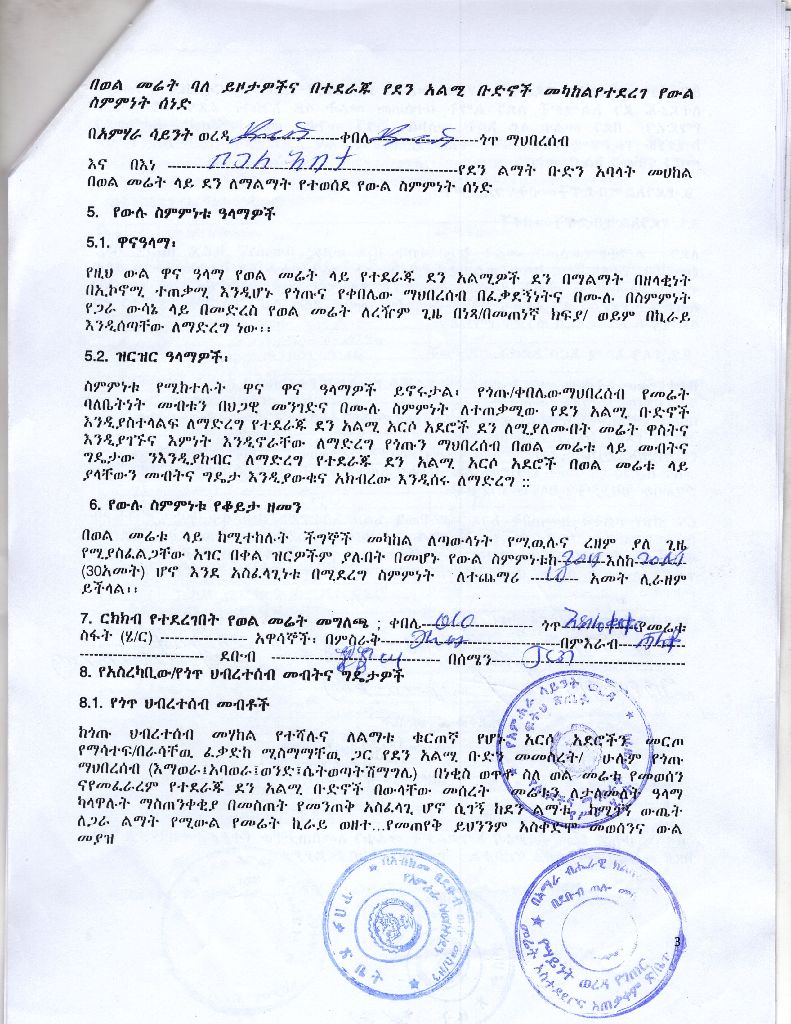 በወል መሬት ባለ ይዞታዎችና በተደራጁ የደን አልሚ ቡድኖች መካከልየተደረገ የውል
ስምምነት ሰነድ
በአምሃራ ሳይንት ወረዳ ቀበሌ ጎጥ ማህበረሰብ
እና በእነ የደን ልማት ቡድን አባላት መሀከል
በወል መሬት ላይ ደን ለማልማት የተወሰደ የውል ስምምነት ሰነድ
5. የውሉ ስምምነቱ ዓላማዎች
5.1. ዋናዓላማ፡
የዚህ ውል ዋና ዓላማ የወል መሬት ላይ የተደራጁ ደን አልሚዎች ደን በማልማት በዘላቂነት
በኢኮኖሚ ተጠቃሚ እንዲሆኑ የጎጡና የቀበሌው ማህበረሰብ በፈቃደኝነትና በሙሉ በስምምነት
የጋራ ውሳኔ ላይ በመድረስ የወል መሬት ለረዥም ጊዜ በነጻ/በመጠነኛ ክፍያ/ ወይም በኪራይ
እንዲሰጣቸው ለማድረግ ነው፡፡
5.2. ዝርዝር ዓላማዎች፡
ስምምነቱ የሚከተሉት ዋና ዋና ዓላማዎች ይኖሩታል፡ የጎጡ/ቀበሌውማህበረሰብ የመሬት
ባለቤትነት መብቱን በህጋዊ መንገድና በሙሉ ስምምነት ለተጠቃሚው የደን አልሚ ቡድኖች
እንዲያስተላልፍ ለማድረግ የተደራጁ ደን አልሚ አርሶ አደሮች ደን ለሚያለሙበት መሬት ዋስትና
እንዲያገኙና እምነት እንዲኖራቸው ለማድረግ የጎጡን ማህበረሰብ በወል መሬቱ ላይ መብትና
ግዴታው ንእንዲያከብር ለማድረግ የተደራጁ ደን አልሚ አርሶ አደሮች በወል መሬቱ ላይ
ያላቸውን መብትና ግዴታ እንዲያውቁና አክብረው እንዲሰሩ ለማድረግ ::
6. የውሉ ስምምነቱ የቆይታ ዘመን
በወል መሬቱ ላይ ከሚተከሉት ችግኞች መካከል ለጣውላነት የሚዉሉና ረዘም ያለ ጊዜ
የሚያስፈልጋቸው አገር በቀል ዝርዎችም ያሉበት በመሆኑ የውል ስምምነቱከ እስከ
(30አመት) ሆኖ እንደ አስፈላጊነቱ በሚደረግ ስምምነት ለተጨማሪ 10 አመት ሊራዘም
ይችላል፡፡
7. ርክክብ የተደረገበት የወል መሬት መግለጫ ; ቀበሌ ጎጥ የመሬቱ
ስፋት (ሄ/ር) አዋሳኞች፡ በምስራቅ በምእራብ
ደቡብ በሰሜን
8. የአስረካቢው/የጎጥ ህብረተሰብ መብትና ግዴታዎች
8.1. የጎጥ ህብረተሰብ መብቶች
ከጎጡ ህብረተሰብ መሃከል የተሻሉና ለልማቱ ቁርጠኛ የሆኑ አርሶ አደሮችን መርጦ
የማሳተፍ/በራሳቸዉ ፈቃድከ ሚስማማቸዉ ጋር የደን አልሚ ቡድን መመስረት/ ሁሉም የጎጡ
ማህበረሰብ (እማወራ፤አባወራ፤ወንድ፤ሴትወጣትሽማግሌ) በነቂስ ወጥቶ ስለ ወል መሬቱ የመወሰን
ናየመፈራረም የተደራጁ ደን አልሚ ቡድኖች በውላቸው መሰረት መሬቱን ለታለመለት ዓላማ
ካላዋሉት ማስጠንቀቂያ በመስጠት የመንጠቅ አስፈላጊ ሆኖ ሲገኝ ከደን ልማቱ ከሚገኝ ውጤት
ለጋራ ልማት የሚውል የመሬት ኪራይ ወዘተ...የመጠየቅ ይህንንም አስቀድሞ መወሰንና ውል
መያዝ
3